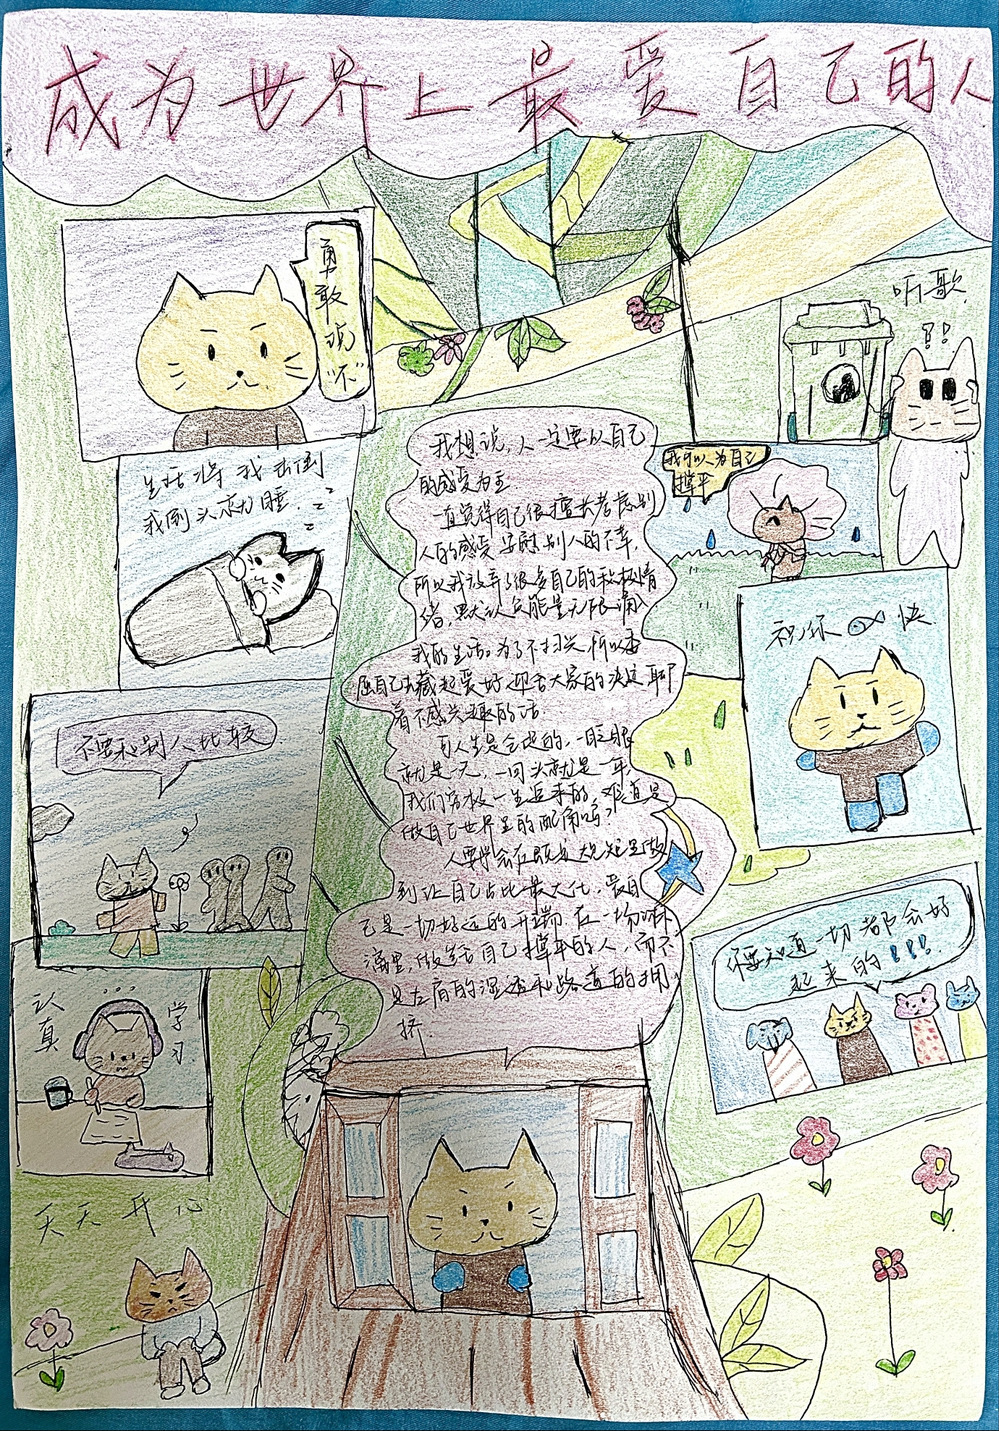 成为世界上最爱自己的人
勇敢说
"不"
听歌
?!!
生活将我击倒
我倒头就睡.
zzz
我可以为自己
撑伞
祝你 快
不要和别人比较
认真
学习
你要知道一切都会好
起来的!!!
天天开心
我想说,人一定要以自己
的感受为主
一直觉得自己很擅长考虑别
人的感受 安慰别人的不幸,
所以我放弃了很多自己的积极情
绪,默认负能量无限涌入
我的生活。为了不扫兴 所以委
屈自己去藏起爱好 迎合大家的决定 聊
着不感兴趣的话.
人生是会过的,一眨眼
就是一天,一回头就是一年
我们穷极一生追来的,难道是
做自己世界里的配角吗?
人要学会在既定大规矩里做
到让自己占比最大化.爱自
己是一切好运的开端 在一场淋
漓里,做给自己撑伞的人,而不
是左肩的湿透和路道的拥
挤